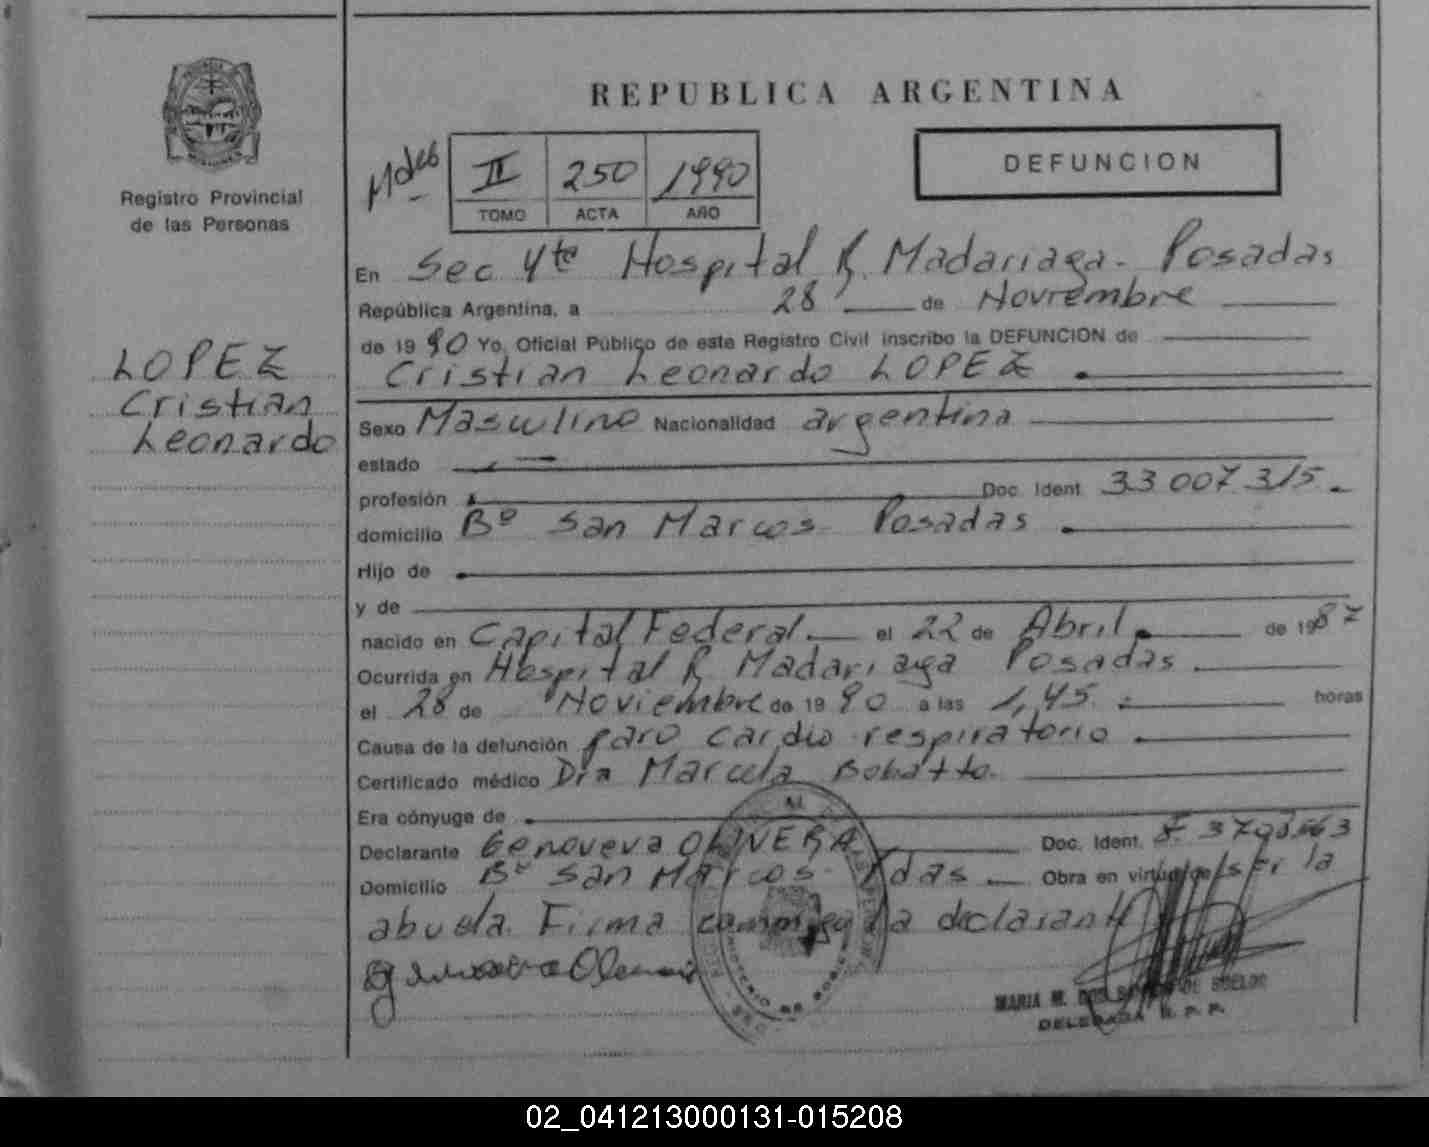 REPUBLICA ARGENTINA
Registro Provincial
de las Personas
Mdes
II 250 1990
TOMO ACTA AÑO
DEFUNCION
En Sec 4te Hospital R. Madariaga. Posadas
República Argentina, a 28 de Noviembre
de 1990 Yo, Oficial Público de este Registro Civil inscribo la DEFUNCION de
Cristian Leonardo LOPEZ
LOPEZ
Cristian
Leonardo
Sexo Masculino Nacionalidad argentina
estado
profesión Doc. Ident. 33 007 315.
domicilio Bº San Marcos Posadas
Hijo de
y de
nacido en Capital Federal el 22 de Abril de 1987
Ocurrida en Hospital R Madariaga Posadas
el 28 de Noviembre de 1990 a las 1,45 horas
Causa de la defunción paro cardio respiratorio
Certificado médico Dra Marcela
Era cónyuge de
Declarante Genoveva OLIVERA Doc. Ident.
Domicilio Bº San Marcos Pdas Obra en virtud de ser la
abuela. Firma la declarante
MARIA M. DOS DE SUELDO
DELEGADA R. P. P.
02_041213000131-015208